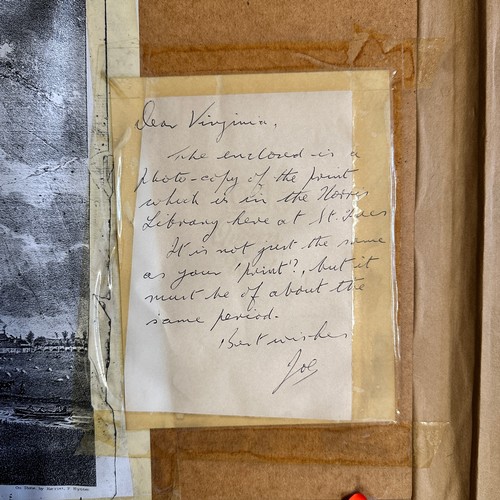 Dear Virginia,
The enclosed is a
photo-copy of the print
which is in the Norris
Library here at St. Ives
It is not just the same
as your 'print'?, but it
must be of about the
same period.
Best wishes
Joe
On Stone by